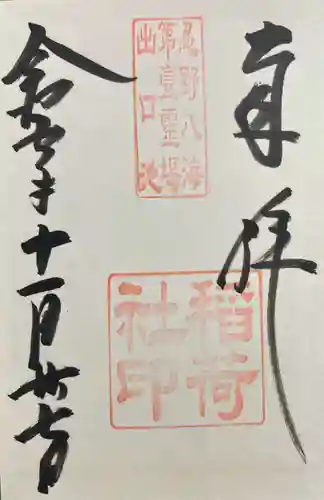 奉拝
忍野八海
第壹靈場
出口池
稻荷
社印
令和年十一月廿七日